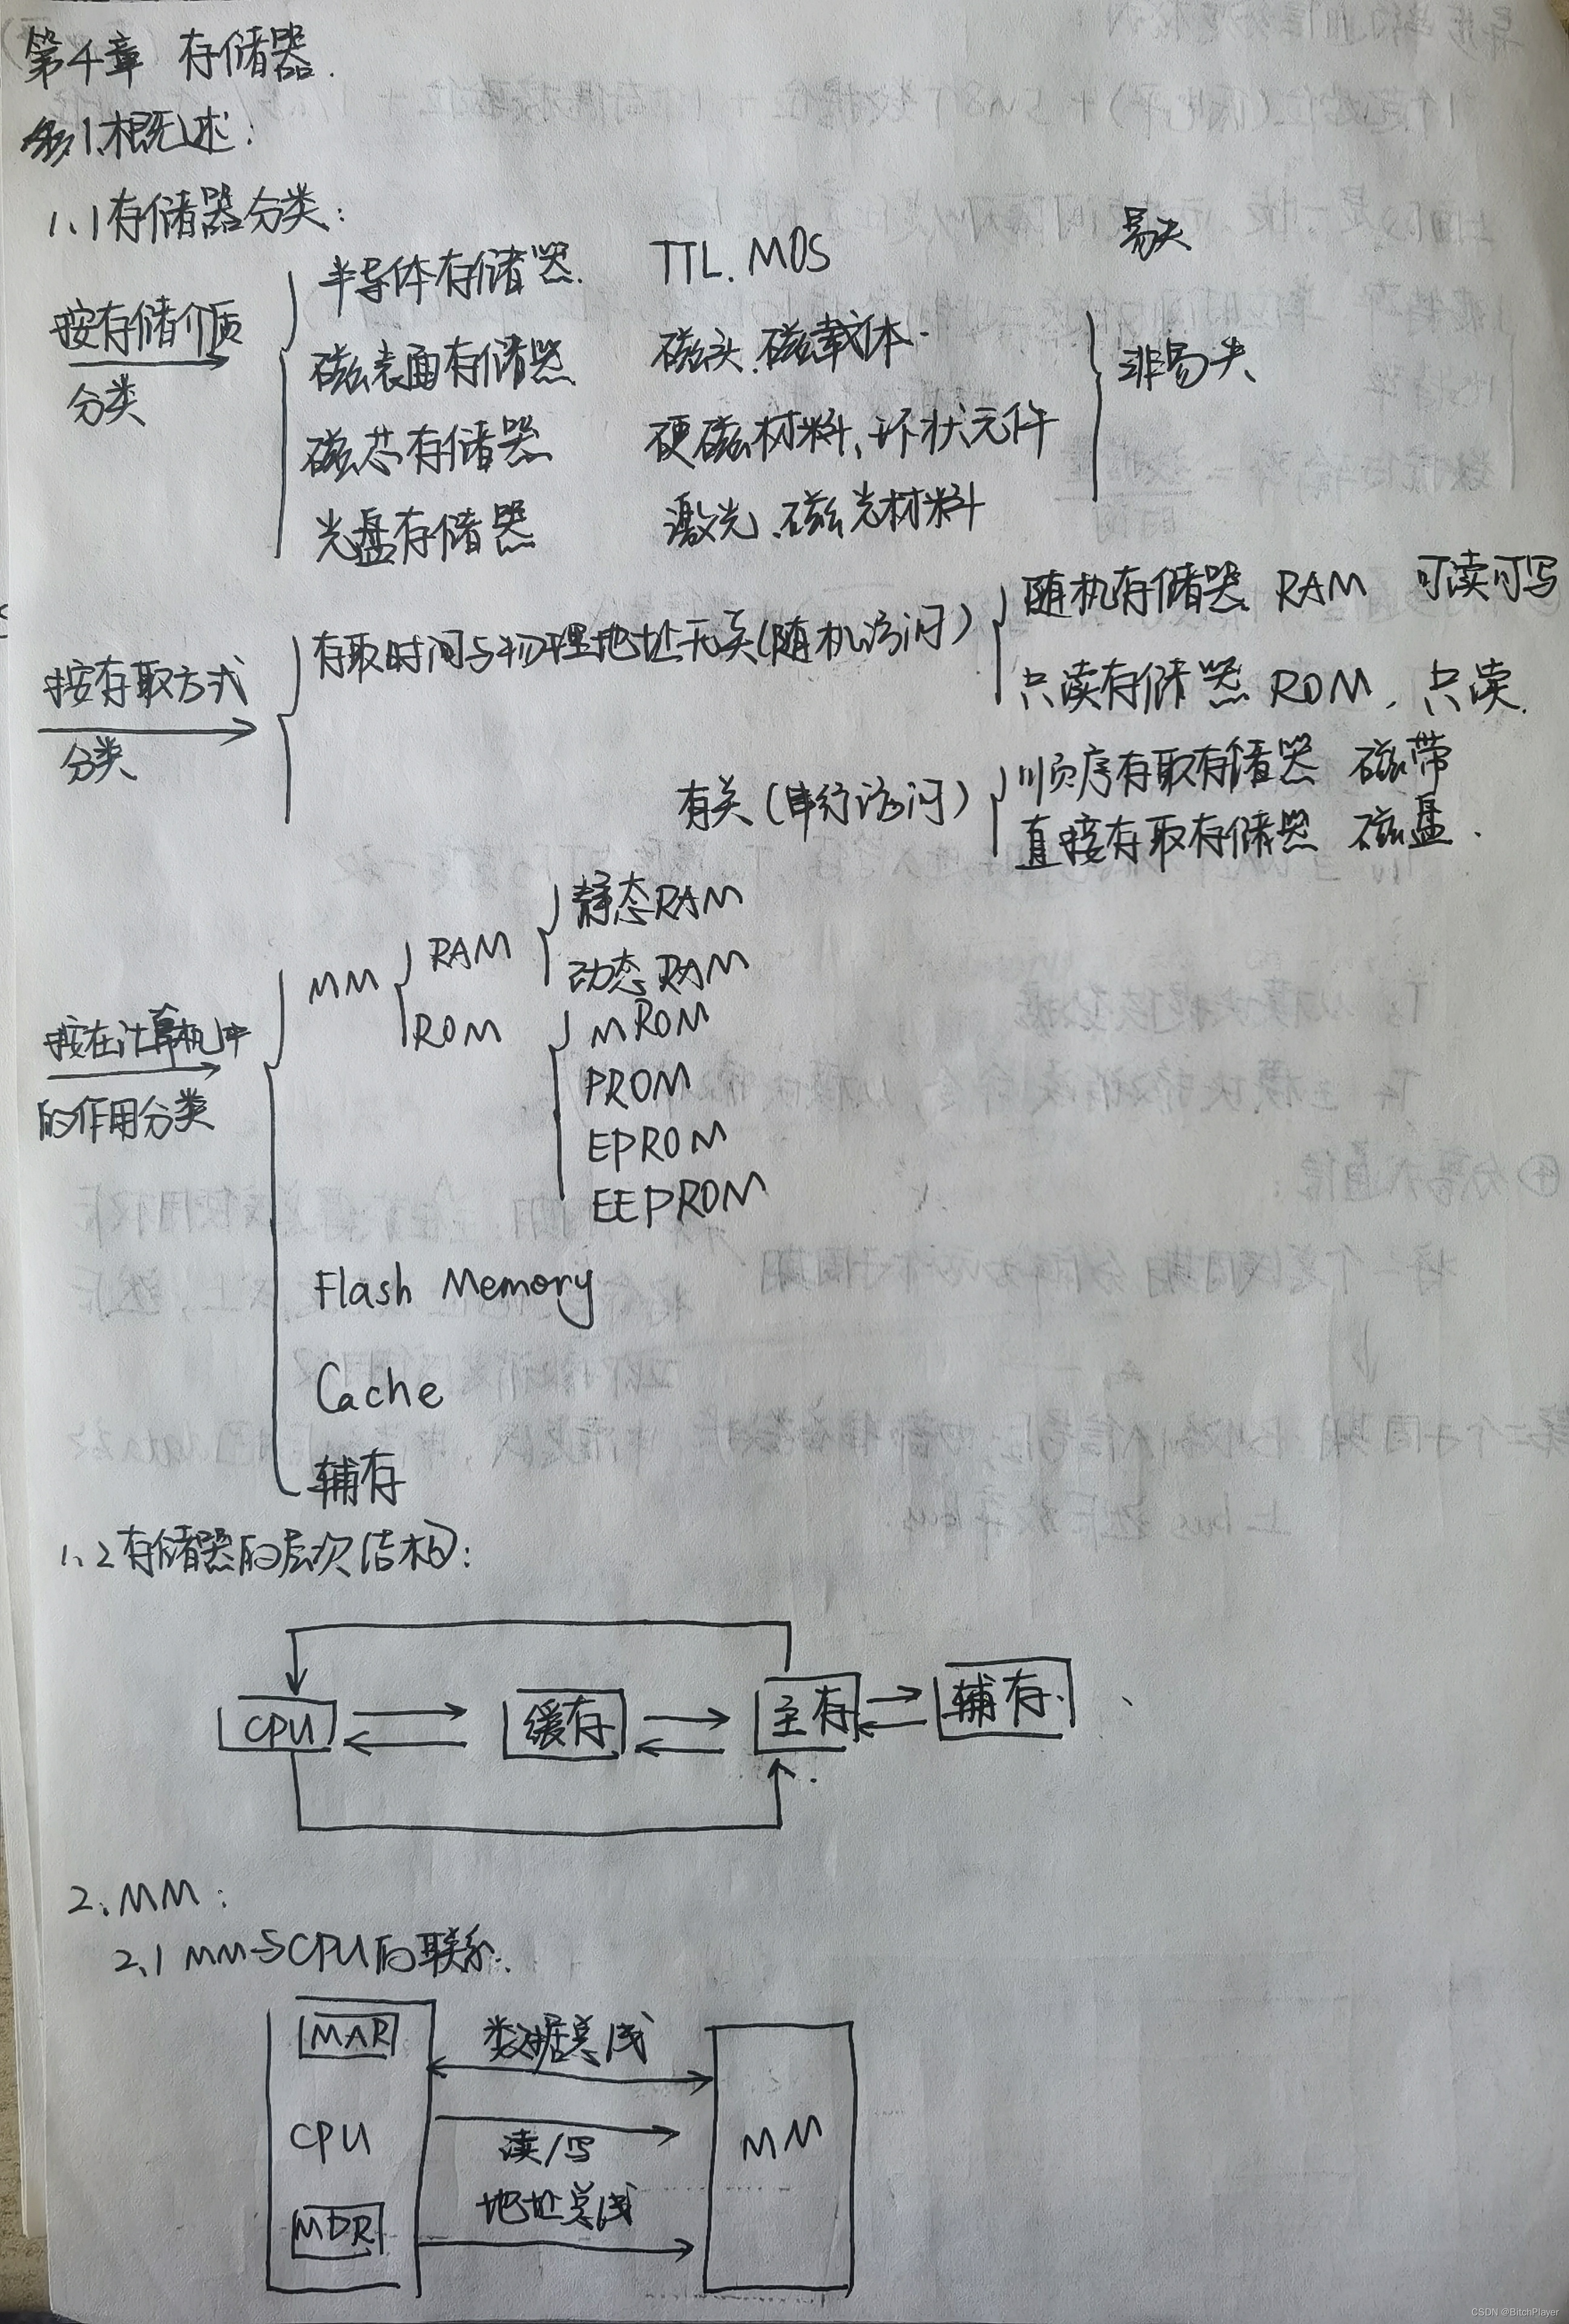 第4章 存储器.
1.概述:
1.1存储器分类:
按存储介质
分类
半导体存储器. TTL.MOS 易失
磁表面存储器 磁头.磁载体. 非易失
磁芯存储器 硬磁材料、环状元件
光盘存储器 激光、磁光材料
按存取方式
分类
存取时间与物理地址无关(随机访问)
随机存储器 RAM 可读可写
只读存储器 ROM. 只读.
有关(串行访问)
顺序存取存储器 磁带
直接存取存储器 磁盘.
按在计算机中
的作用分类
MM
RAM
静态RAM
动态RAM
ROM
MROM
PROM
EPROM
EEPROM
Flash Memory
Cache
辅存
1.2存储器的层次结构:
CPU 缓存 主存 辅存.
2.MM:
2.1 MM与CPU的联系.
MAR 数据总线
CPU 读/写 MM
MDR 地址总线
CSDN @BitchPlayer